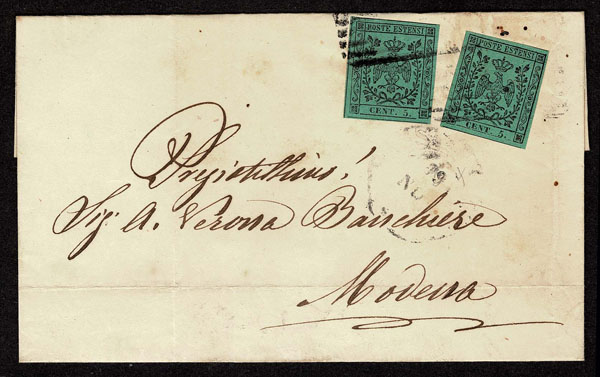 POSTE ESTENSI
CENT. 5.
POSTE ESTENSI
CENT. 5.
Sig. A. Verona Banchiere
Modena